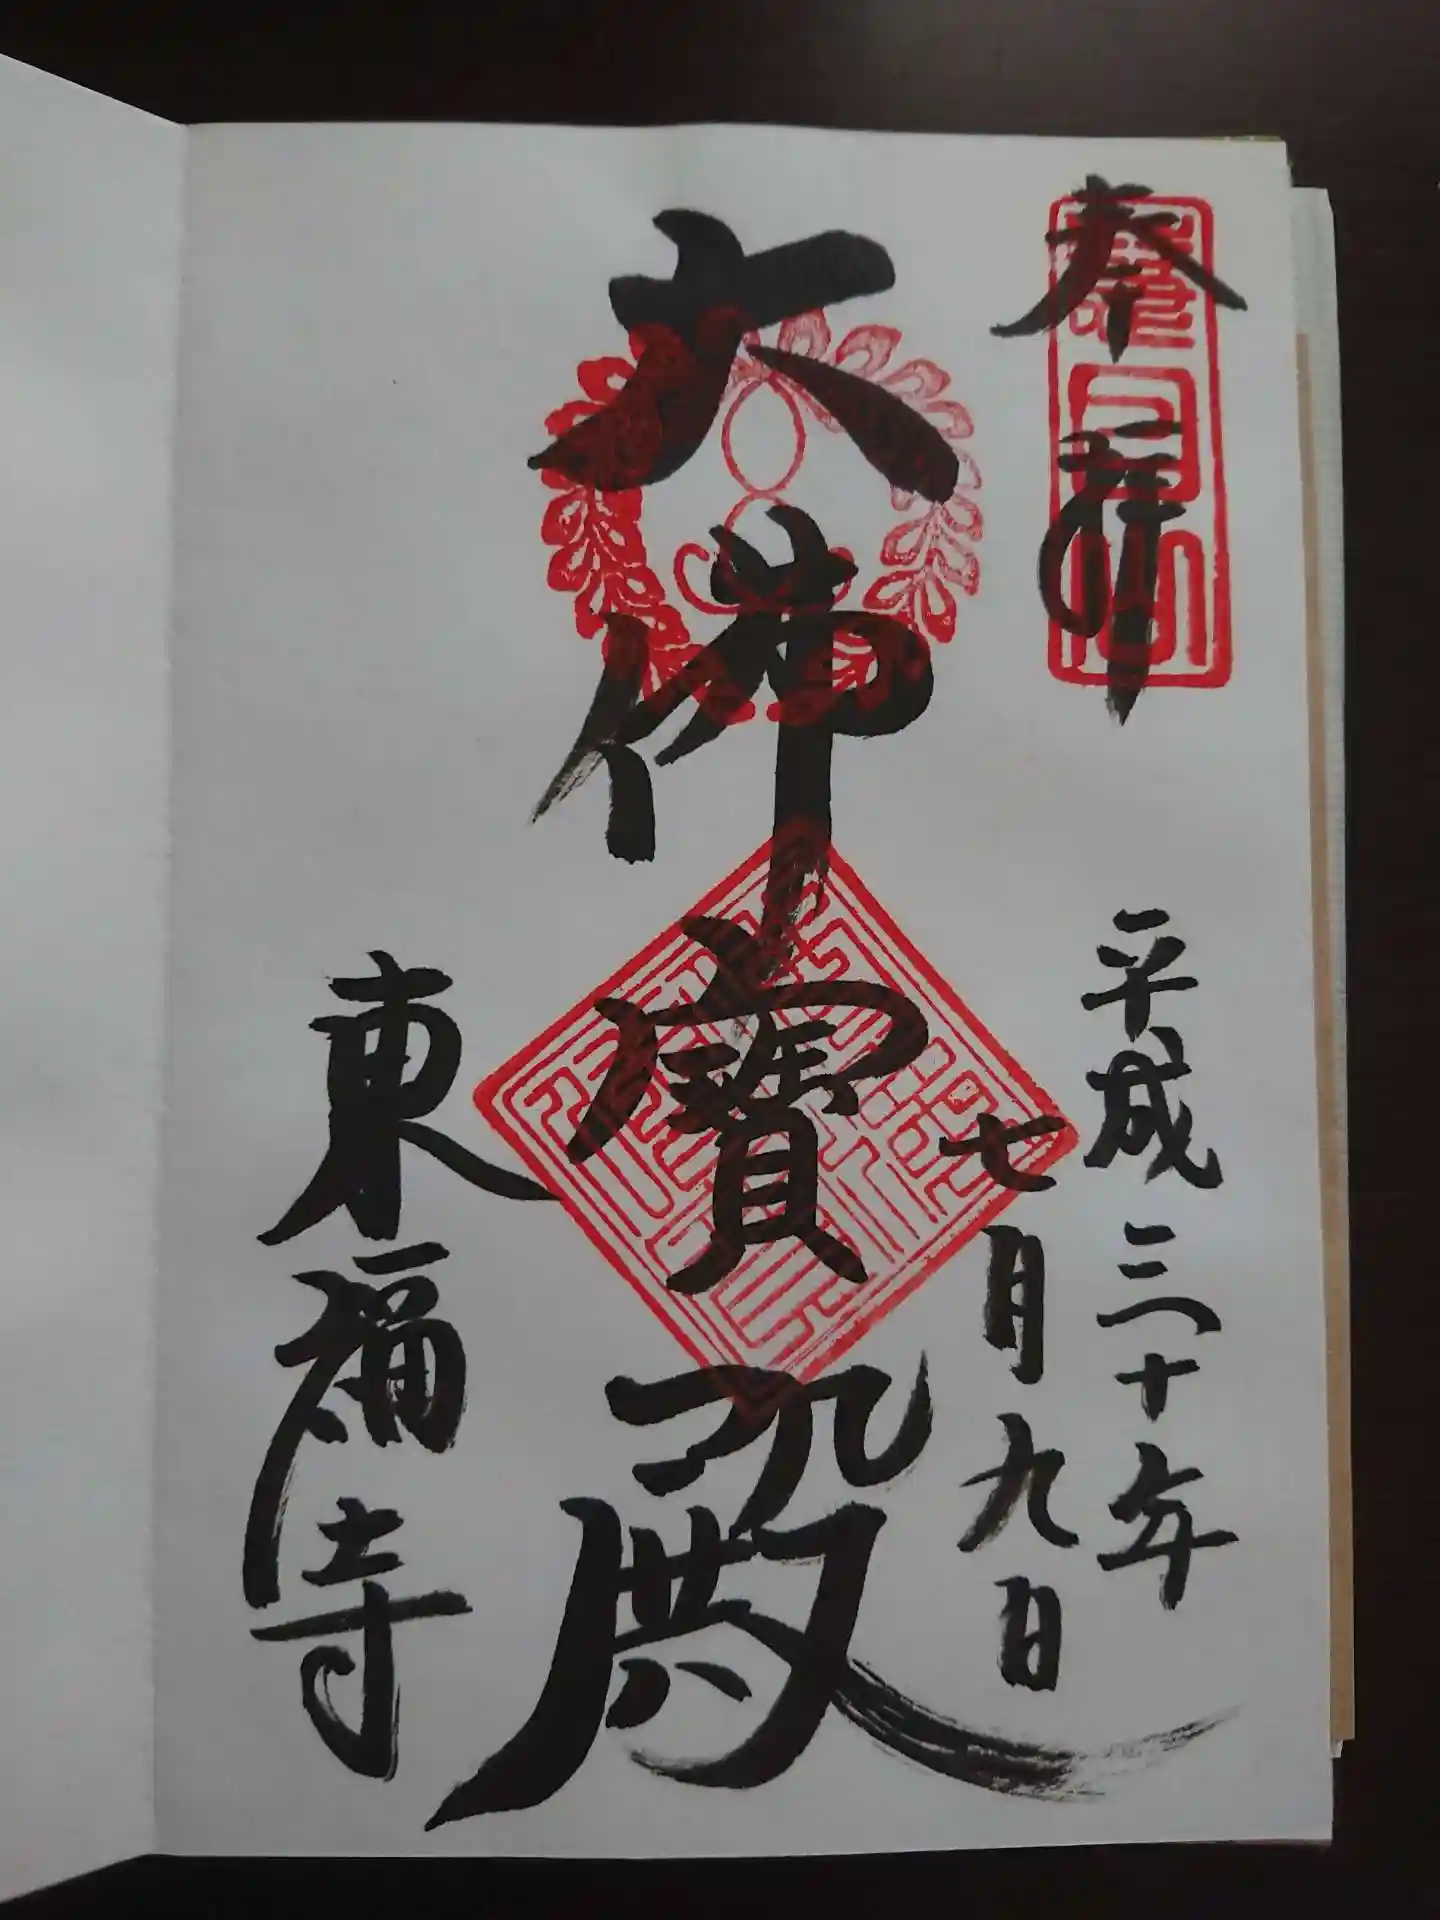 奉拝
平成三十年
七月九日
大佛寶殿
東福寺